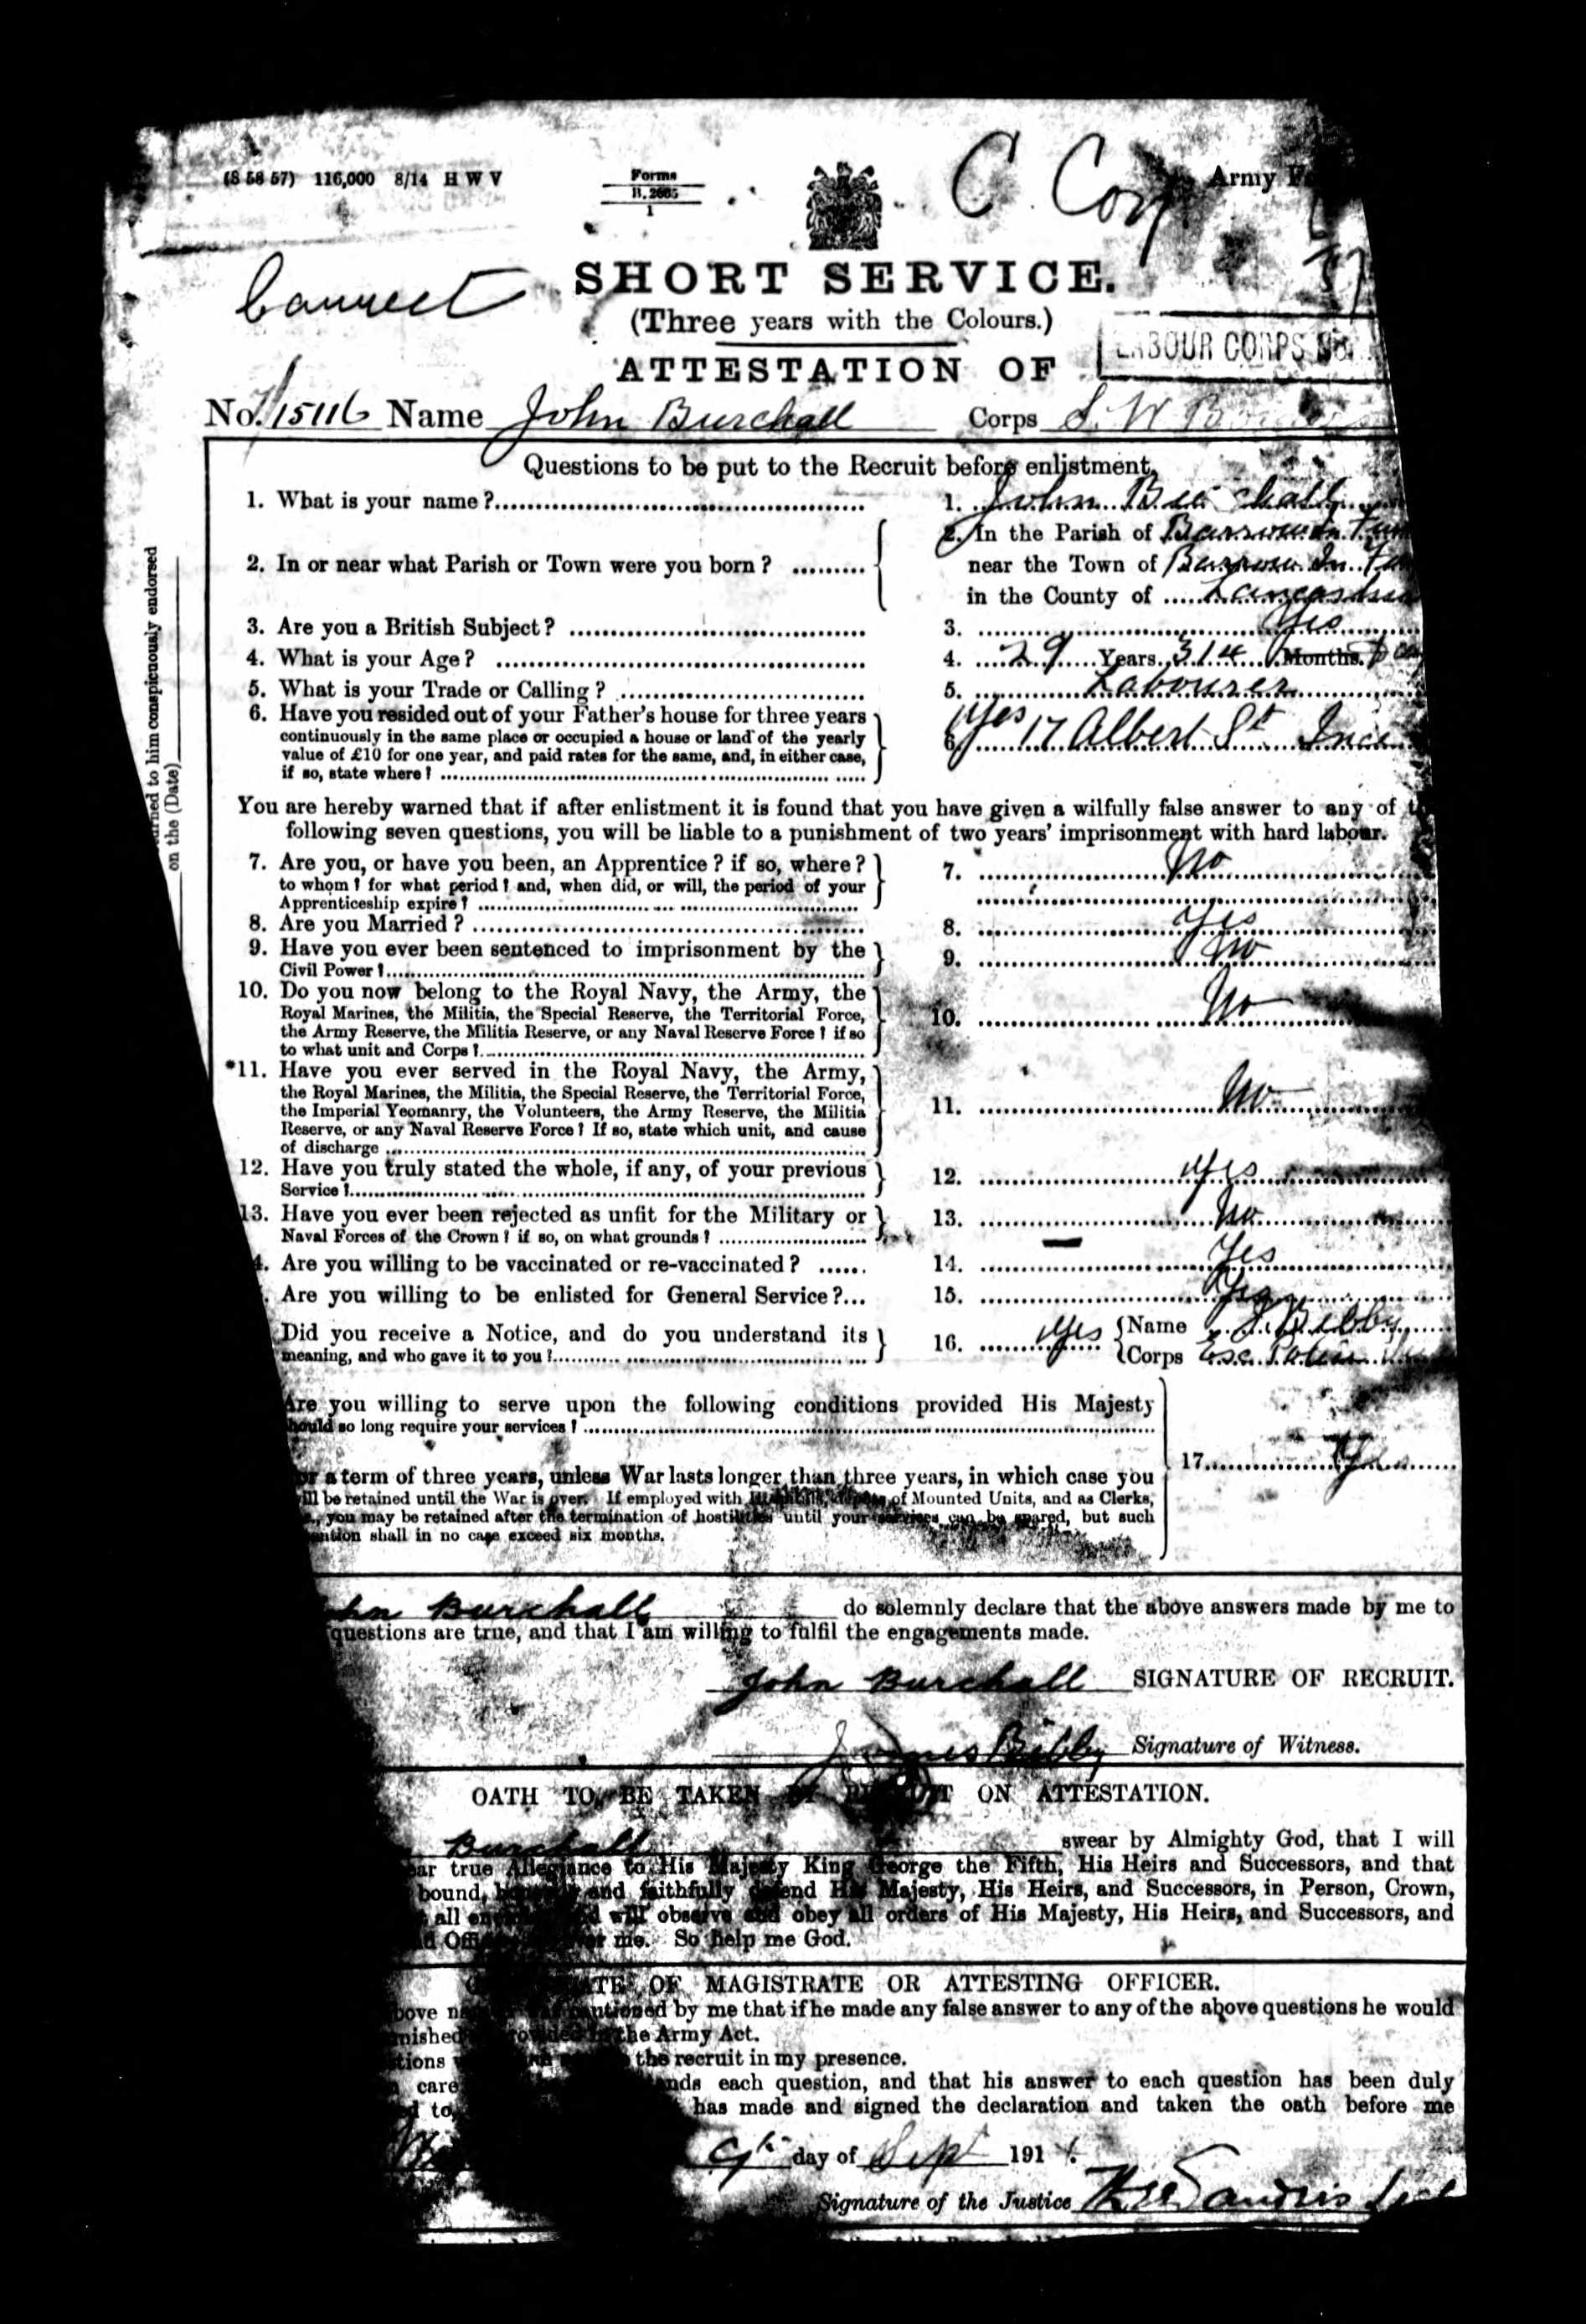 (S 58 57) 116,000 8/14 H W V
Forms
B. 2665
1
C
Army
SHORT SERVICE.
(Three years with the Colours.)
LABOUR CORPS No.
ATTESTATION OF
No. 15116 Name John Burchall Corps S. W. Bor
Questions to be put to the Recruit before enlistment.
1. What is your name ? 1. John Burchall
2. In or near what Parish or Town were you born ?
2. In the Parish of Barrow In Fur
near the Town of Barrow In Fur
in the County of Lancashire
3. Are you a British Subject ? 3. Yes
4. What is your Age ? 4. 29 Years 314 Months
5. What is your Trade or Calling ? 5. Labourer
6. Have you resided out of your Father's house for three years
continuously in the same place or occupied a house or land of the yearly
value of £10 for one year, and paid rates for the same, and, in either case,
if so, state where ?
6. Yes 17 Albert St Ince
You are hereby warned that if after enlistment it is found that you have given a wilfully false answer to any of
following seven questions, you will be liable to a punishment of two years' imprisonment with hard labour.
7. Are you, or have you been, an Apprentice ? if so, where ?
to whom ? for what period ? and, when did, or will, the period of your
Apprenticeship expire ?
7. No
8. Are you Married ? 8. Yes
9. Have you ever been sentenced to imprisonment by the
Civil Power ?
9. No
10. Do you now belong to the Royal Navy, the Army, the
Royal Marines, the Militia, the Special Reserve, the Territorial Force,
the Army Reserve, the Militia Reserve, or any Naval Reserve Force ? if so
to what unit and Corps ?
10. No
*11. Have you ever served in the Royal Navy, the Army,
the Royal Marines, the Militia, the Special Reserve, the Territorial Force,
the Imperial Yeomanry, the Volunteers, the Army Reserve, the Militia
Reserve, or any Naval Reserve Force ? If so, state which unit, and cause
of discharge
11. No
12. Have you truly stated the whole, if any, of your previous
Service ?
12. Yes
13. Have you ever been rejected as unfit for the Military or
Naval Forces of the Crown ? if so, on what grounds ?
13. No
Are you willing to be vaccinated or re-vaccinated ? 14. Yes
Are you willing to be enlisted for General Service ? 15. Yes
Did you receive a Notice, and do you understand its
meaning, and who gave it to you ?
16. Yes Name J Bibby
Corps
Are you willing to serve upon the following conditions provided His Majesty
should so long require your services ?
17. Yes
a term of three years, unless War lasts longer than three years, in which case you
be retained until the War is over. If employed with of Mounted Units, and as Clerks,
you may be retained after the termination of hostilities until your services can be spared, but such
shall in no case exceed six months.
John Burchall do solemnly declare that the above answers made by me to
questions are true, and that I am willing to fulfil the engagements made.
John Burchall SIGNATURE OF RECRUIT.
James Bibby Signature of Witness.
OATH TO BE TAKEN BY RECRUIT ON ATTESTATION.
Burchall swear by Almighty God, that I will
true Allegiance to His Majesty King George the Fifth, His Heirs and Successors, and that
bound, honestly and faithfully defend His Majesty, His Heirs, and Successors, in Person, Crown,
all will observe and obey all orders of His Majesty, His Heirs, and Successors, and
me. So help me God.
OF MAGISTRATE OR ATTESTING OFFICER.
cautioned by me that if he made any false answer to any of the above questions he would
the Army Act.
the recruit in my presence.
care each question, and that his answer to each question has been duly
to, has made and signed the declaration and taken the oath before me
9th day of Sept 1914
Signature of the Justice
conspicuously endorsed
on the (Date)